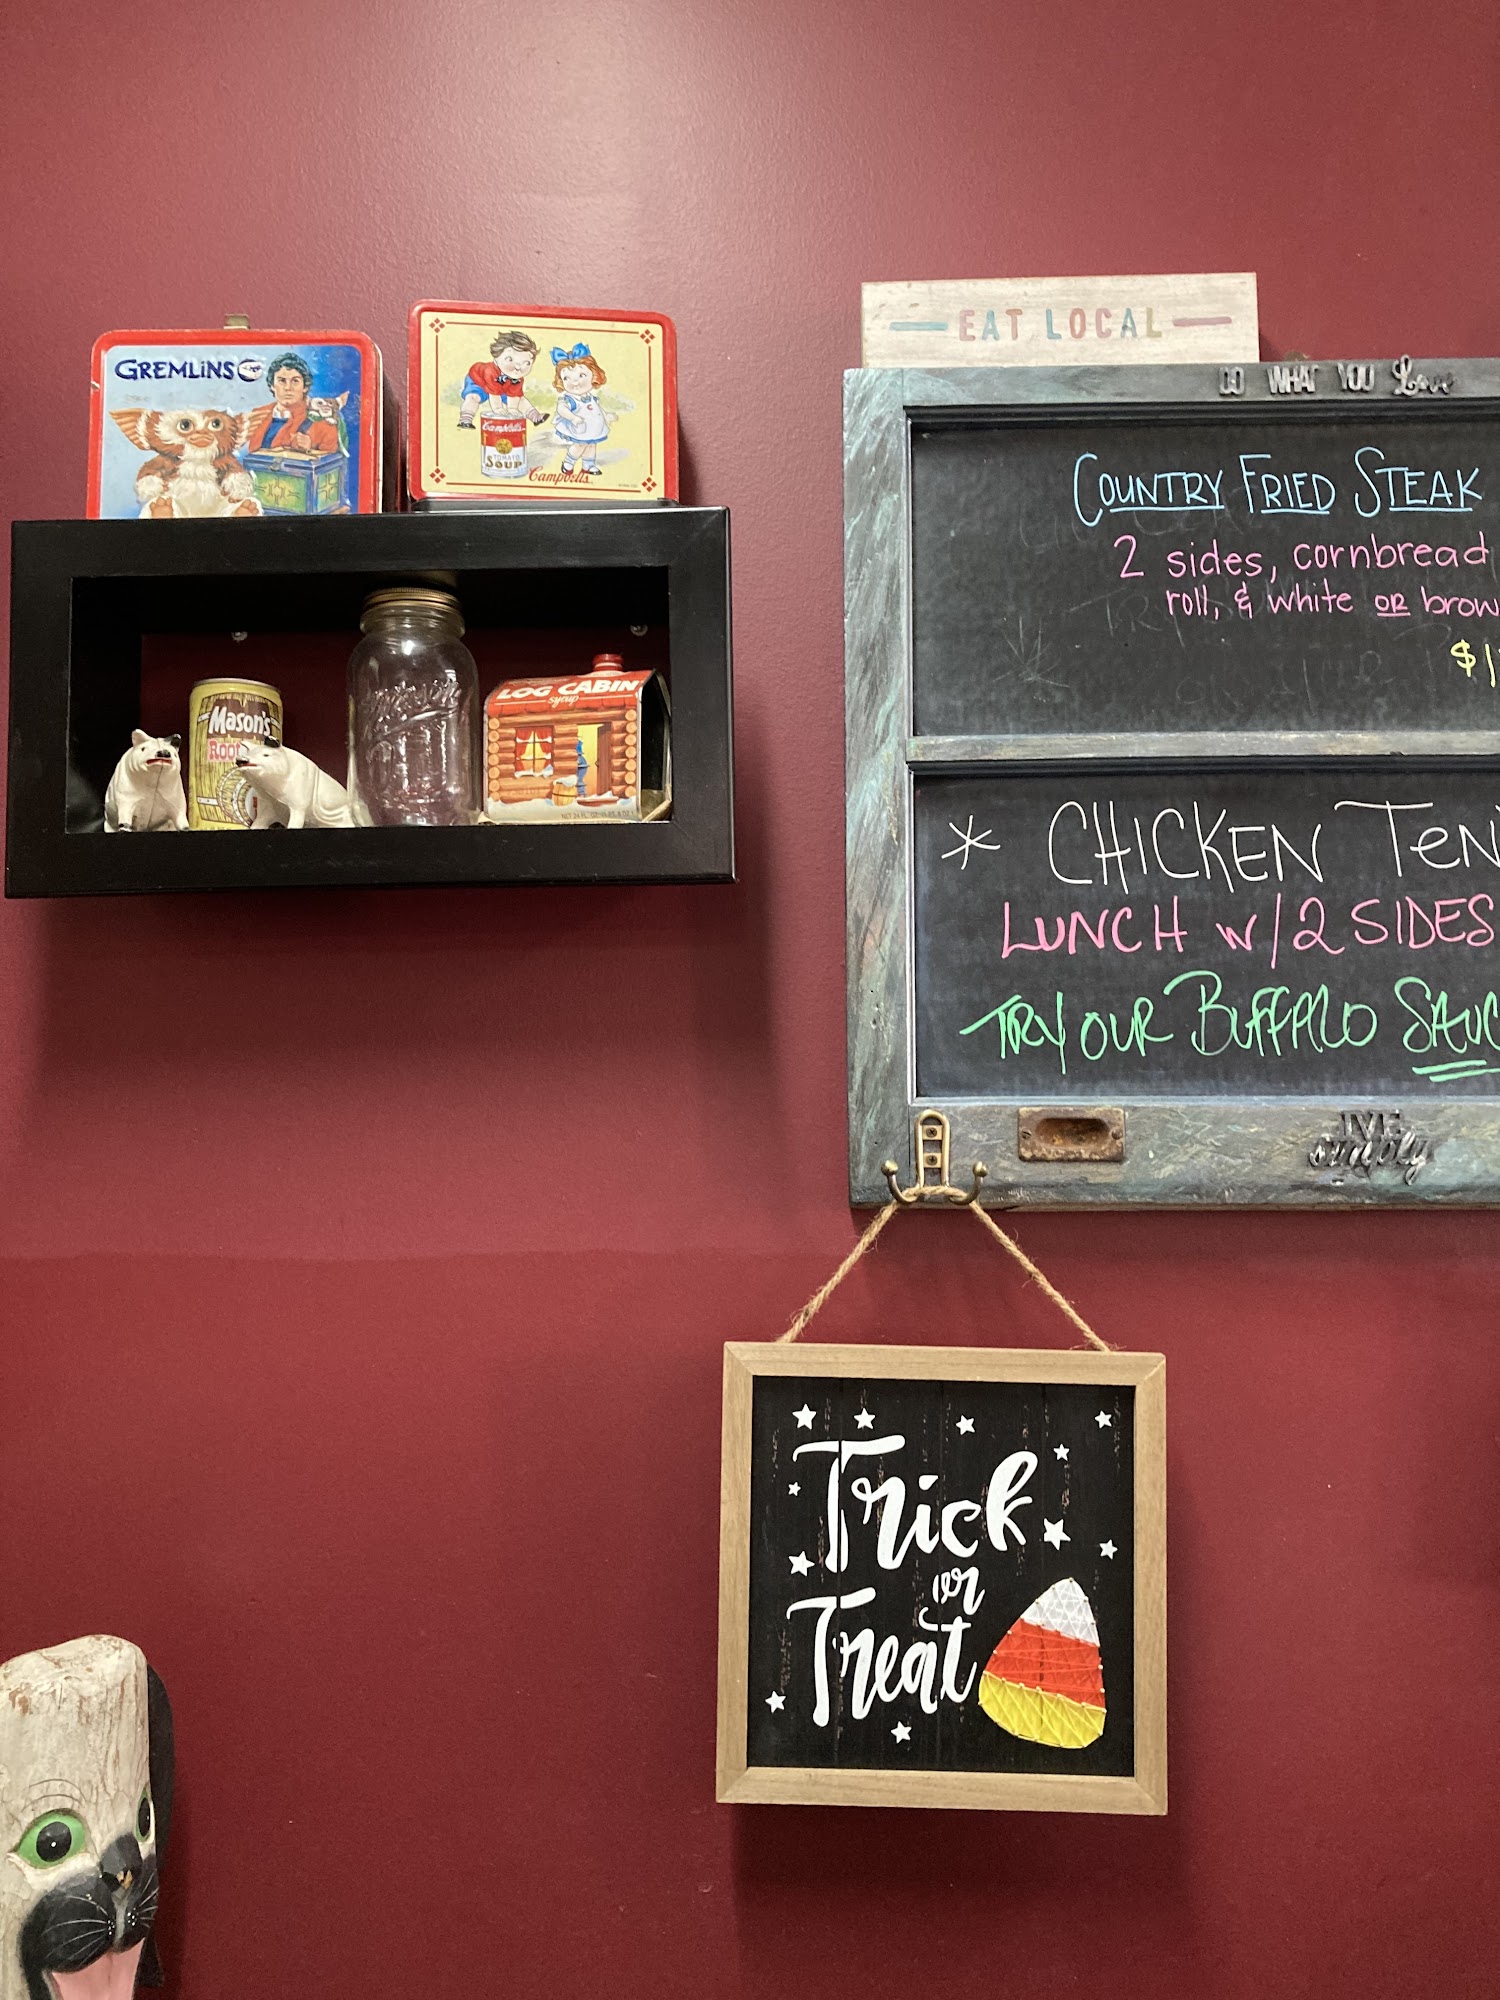 GREMLINS
Campbell's
TOMATO
SOUP
Campbell's
Mason's
LOG CABIN
syrup
EAT LOCAL
DO WHAT YOU Love
COUNTRY FRIED STEAK
2 sides, cornbread
roll, & white OR brow
$1
* CHICKEN TEN
LUNCH W/2 SIDES
TRY OUR BUFFALO SAUC
LIVE
simply
Trick
or
Treat